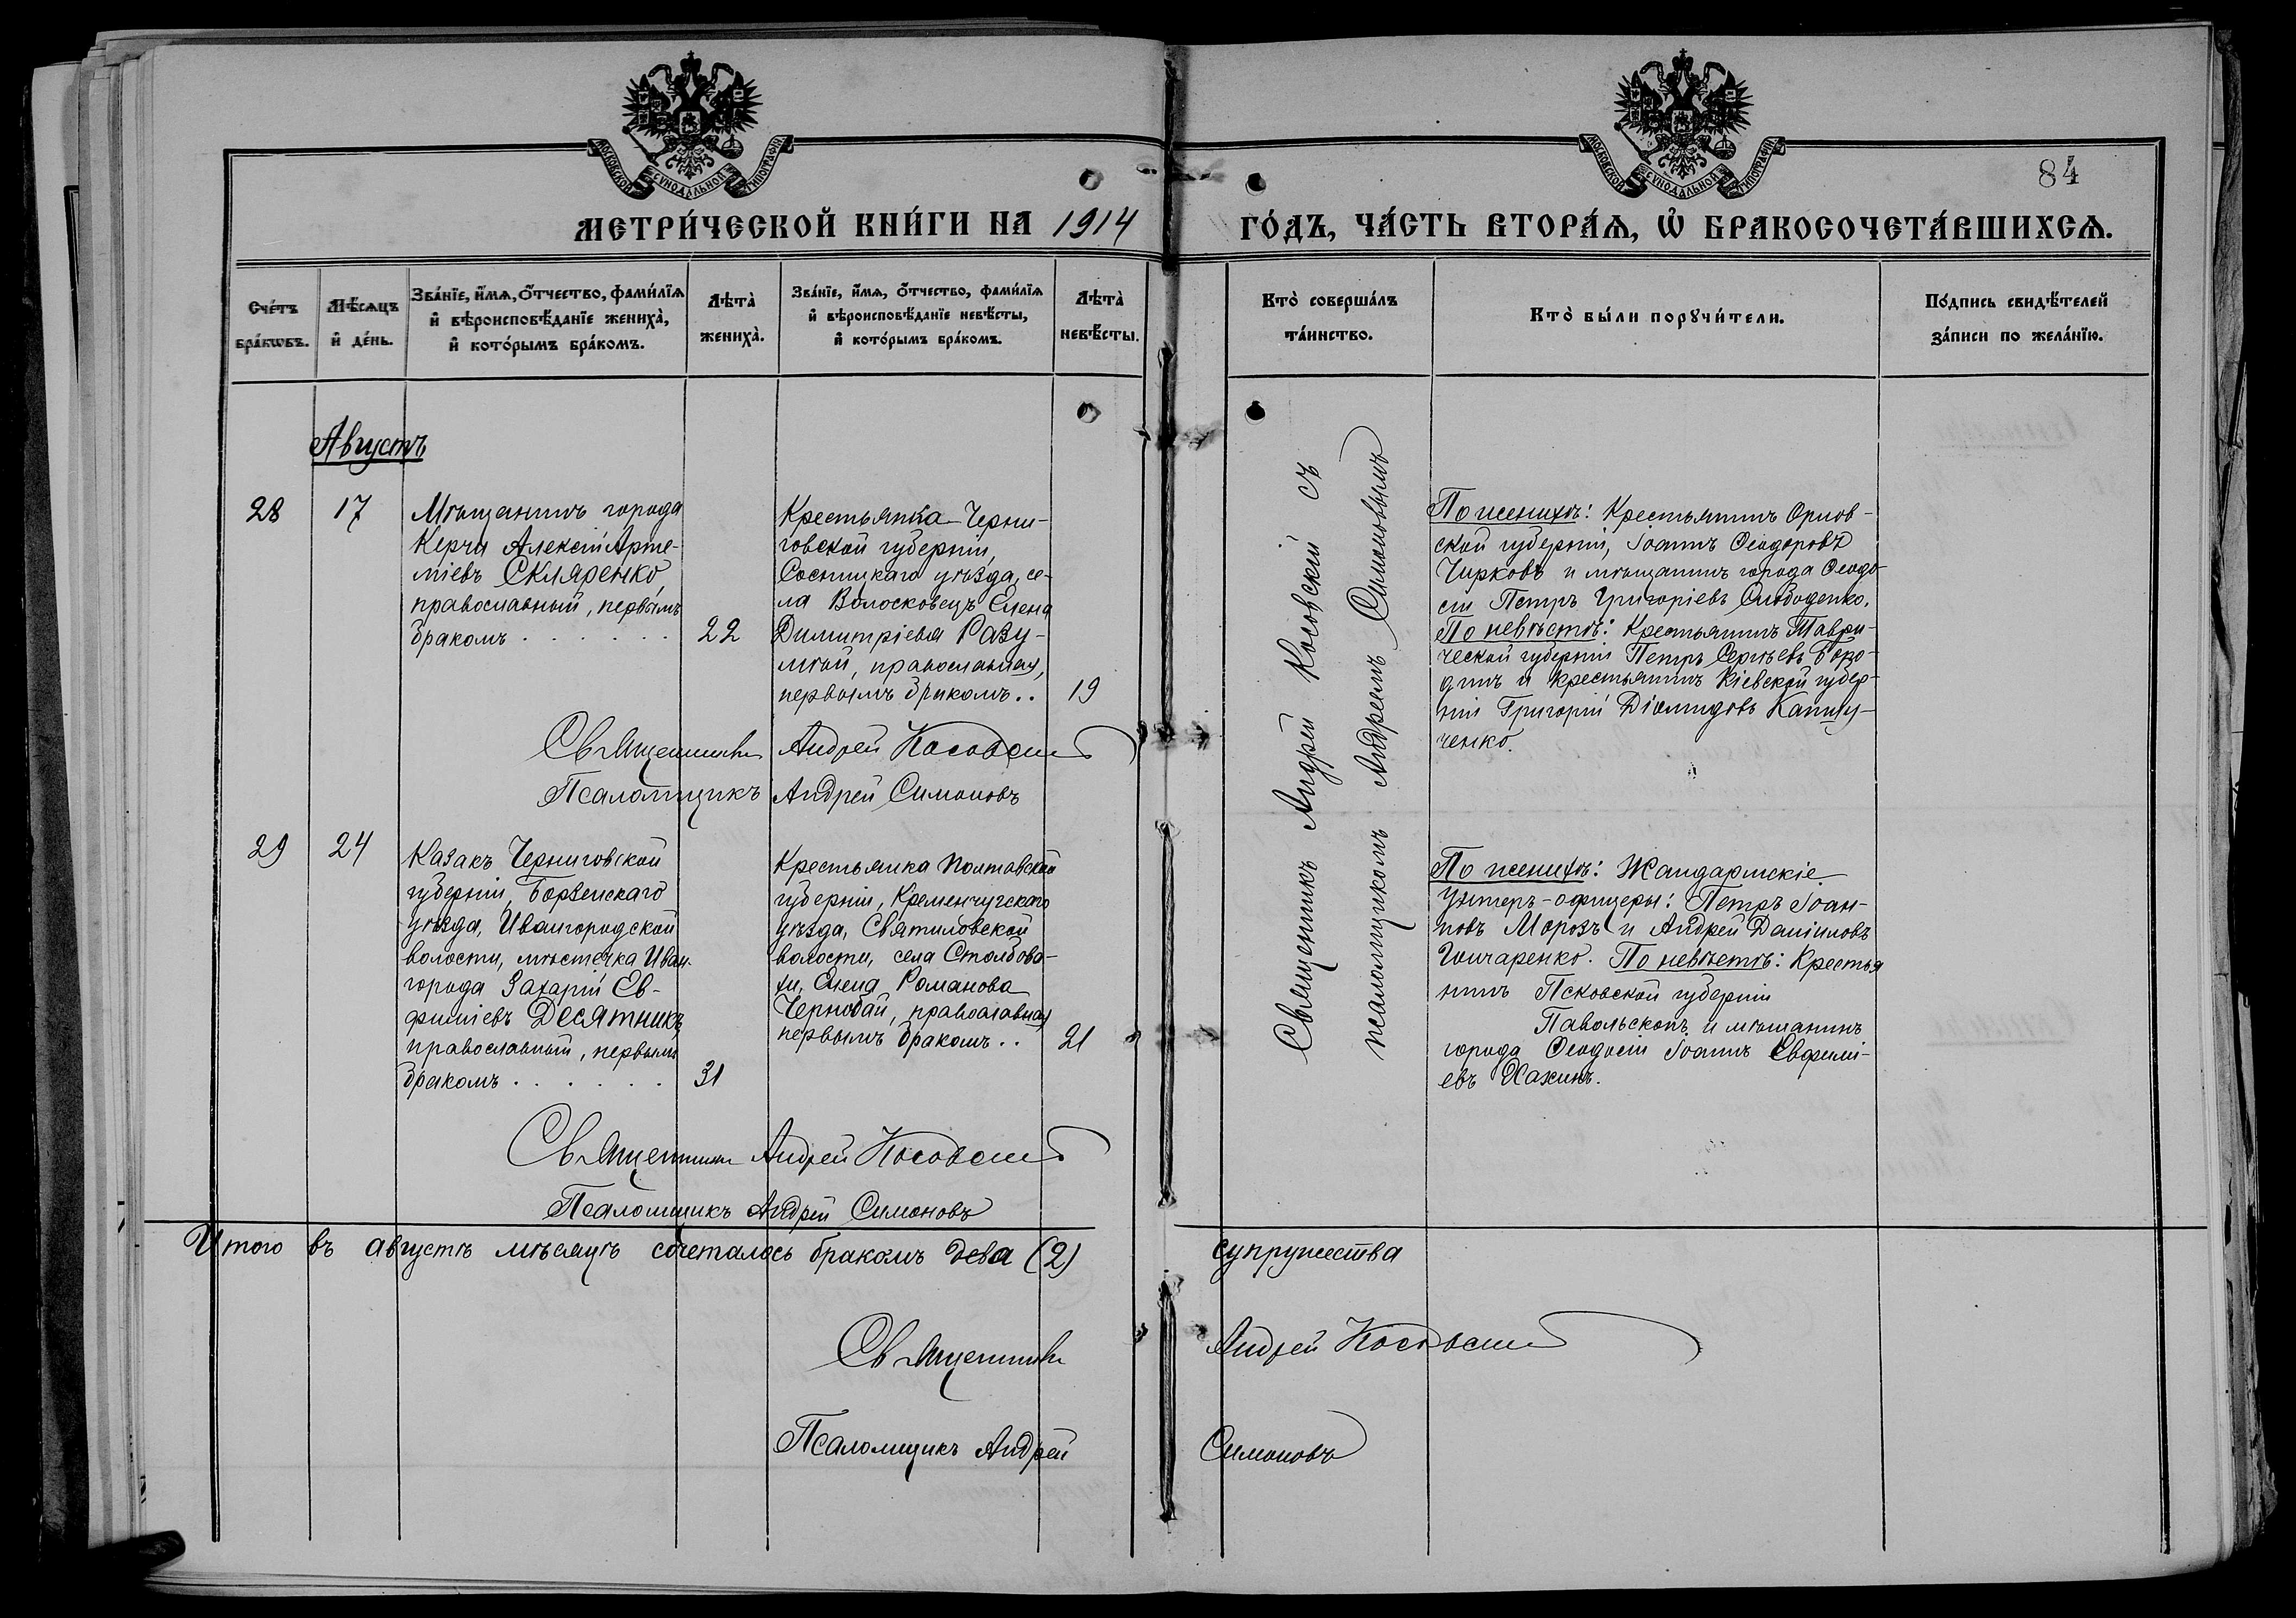 МОСКОВСКОЙ СѴНОДАЛЬНОЙ ТИПОГРАФІИ
МОСКОВСКОЙ СѴНОДАЛЬНОЙ ТИПОГРАФІИ
84
МЕТРИ́ЧЕСКОЙ КНИ́ГИ НА 1914
ГО́ДЪ, ЧА́СТЬ ВТОРА́Ѧ, Ѡ҆ БРАКОСОЧЕТА́ВШИХСѦ.
Сче́тъ бра́кѡвъ.
Мѣ́сѧцъ и҆ де́нь.
Зва́нїе, и҆́мѧ, ѻ҆́тчество, фами́лїѧ и҆ вѣроисповѣ́данїе жениха̀, и҆ кото́рымъ бра́комъ.
Лѣта̀ жениха̀.
Зва́нїе, и҆́мѧ, ѻ҆́тчество, фами́лїѧ и҆ вѣроисповѣ́данїе невѣ́сты, и҆ кото́рымъ бра́комъ.
Лѣта̀ невѣ́сты.
Кто̀ соверша́лъ та́инство.
Кто̀ бы́ли порꙋчи́тели.
По́дпись свидѣ́телей за́писи по жела́нїю.
Августъ
28
17
Мѣщанинъ города
Керчи Алексій Арте-
міевъ Скляренко,
православный, первымъ
бракомъ . . . . . . .
22
Крестьянка Черни-
говской губерніи,
Сосницкаго уѣзда, се-
ла Волосковецъ Елена
Димитріева Разу-
мѣй, православная,
первымъ бракомъ . .
19
Священникъ Андрей Косовскій съ
псаломщикомъ Андреемъ Симоновымъ
По женихѣ: Крестьянинъ Орлов-
ской губерніи, Іоаннъ Ѳеодоровъ
Чирковъ и мѣщанинъ города Ѳеодо-
сіи Петръ Григоріевъ Слободенко.
По невѣстѣ: Крестьянинъ Таври-
ческой губерніи Петръ Сергѣевъ Боро-
динъ и крестьянинъ Кіевской губер-
ніи Григорій Діомидовъ
ченко.
Священникъ Андрей Косовскій
Псаломщикъ Андрей Симоновъ
29
24
Казакъ Черниговской
губерніи, Борзенскаго
уѣзда, Ивангородской
волости, мѣстечка Иван-
города Захарій Ев-
фиміевъ Десятникъ
православный, первымъ
бракомъ . . . . . . .
31
Крестьянка Полтавской
губерніи, Кременчугскаго
уѣзда, Святиловской
волости, села Столбова-
хи, Елена Романова
Чернобай, православная
первымъ бракомъ . .
21
По женихѣ: Жандармскіе
унтеръ-офицеры: Петръ Іоан-
новъ Морозъ и Андрей Даніиловъ
Гончаренко. По невѣстѣ: Крестья
нинъ Псковской губерніи
и мѣщанинъ
города Ѳеодосіи Іоаннъ Евфимі-
евъ
Священникъ Андрей Косовскій
Псаломщикъ Андрей Симоновъ
Итого въ августѣ мѣсяцѣ сочеталось бракомъ два (2) супружества
Священникъ Андрей Косовскій
Псаломщикъ Андрей Симоновъ